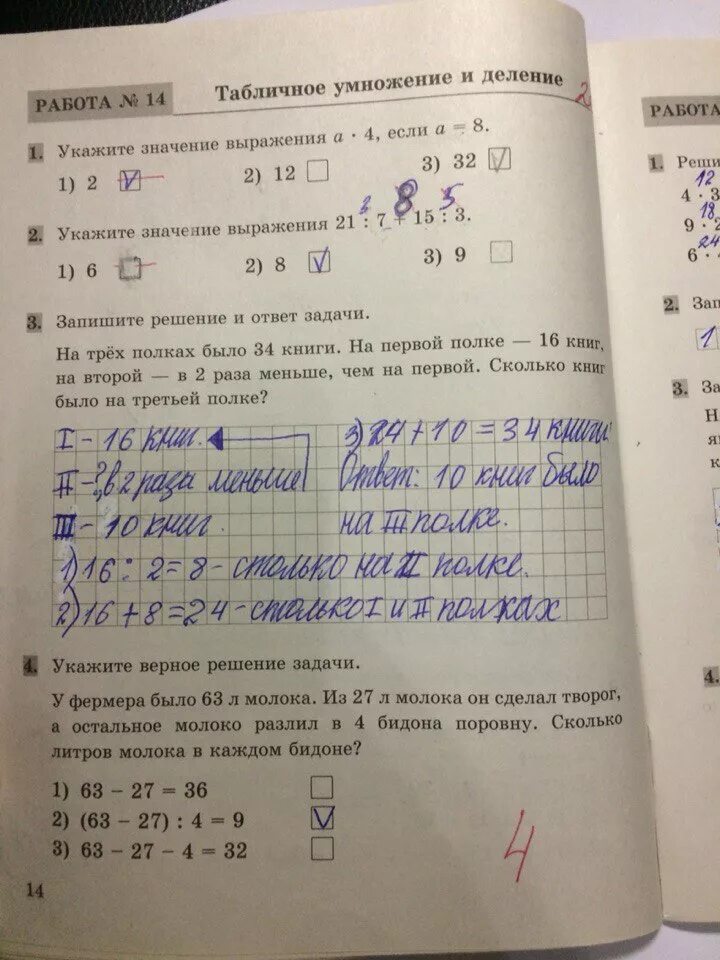 РАБОТА № 14
Табличное умножение и деление
2
1. Укажите значение выражения а · 4, если а = 8.
1) 2 V 2) 12 3) 32 V
3 8 5
2. Укажите значение выражения 21 : 7 + 15 : 3.
1) 6 2) 8 V 3) 9
3. Запишите решение и ответ задачи.
На трёх полках было 34 книги. На первой полке — 16 книг,
на второй — в 2 раза меньше, чем на первой. Сколько книг
было на третьей полке?
I - 16 книг.
II - ?, в 2 раза меньше
III - 10 книг.
1) 16 : 2 = 8 - столько на II полке.
2) 16 + 8 = 24 - столько I и II полках
3) 24 + 10 = 34 книги.
Ответ: 10 книг было
на III полке.
4. Укажите верное решение задачи.
У фермера было 63 л молока. Из 27 л молока он сделал творог,
а остальное молоко разлил в 4 бидона поровну. Сколько
литров молока в каждом бидоне?
1) 63 – 27 = 36
2) (63 – 27) : 4 = 9 V
3) 63 – 27 – 4 = 32
4
14
РАБОТА
1. Реши
12
4 · 3
18
9 · 2
24
6 ·
2. Зап
1
3. За
Н
я
к
4.